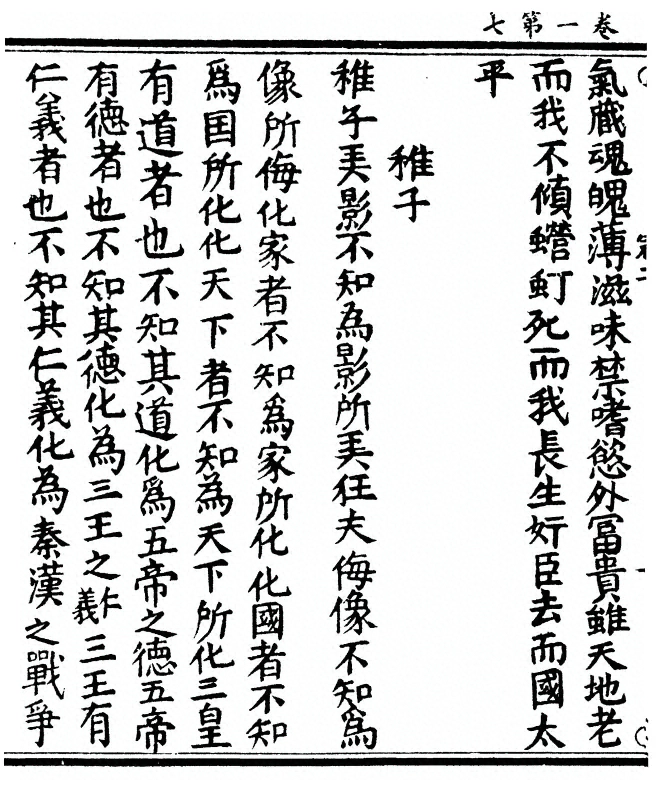 卷一第七
氣臧魂魄薄滋味禁嗜慾外冨貴雖天地老
而我不傾蠮虰死而我長生奸臣去而國太
平
稚子
稚子弄影不知為影所弄狂夫侮像不知為
像所侮化家者不知爲家所化化國者不知
爲国所化化天下者不知為天下所化三皇
有道者也不知其道化爲五帝之德五帝
有德者也不知其德化為三王之仁義三王有
仁義者也不知其仁義化為秦漢之戰爭